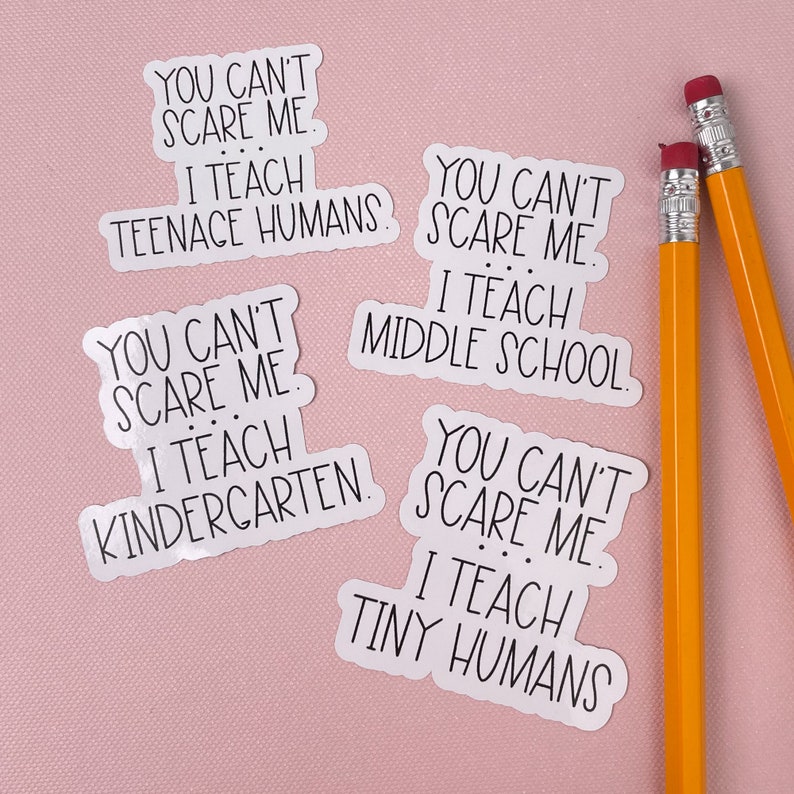 YOU CAN'T
SCARE ME.
...
I TEACH
TEENAGE HUMANS.
YOU CAN'T
SCARE ME.
...
I TEACH
MIDDLE SCHOOL.
YOU CAN'T
SCARE ME.
...
I TEACH
KINDERGARTEN.
YOU CAN'T
SCARE ME.
...
I TEACH
TINY HUMANS